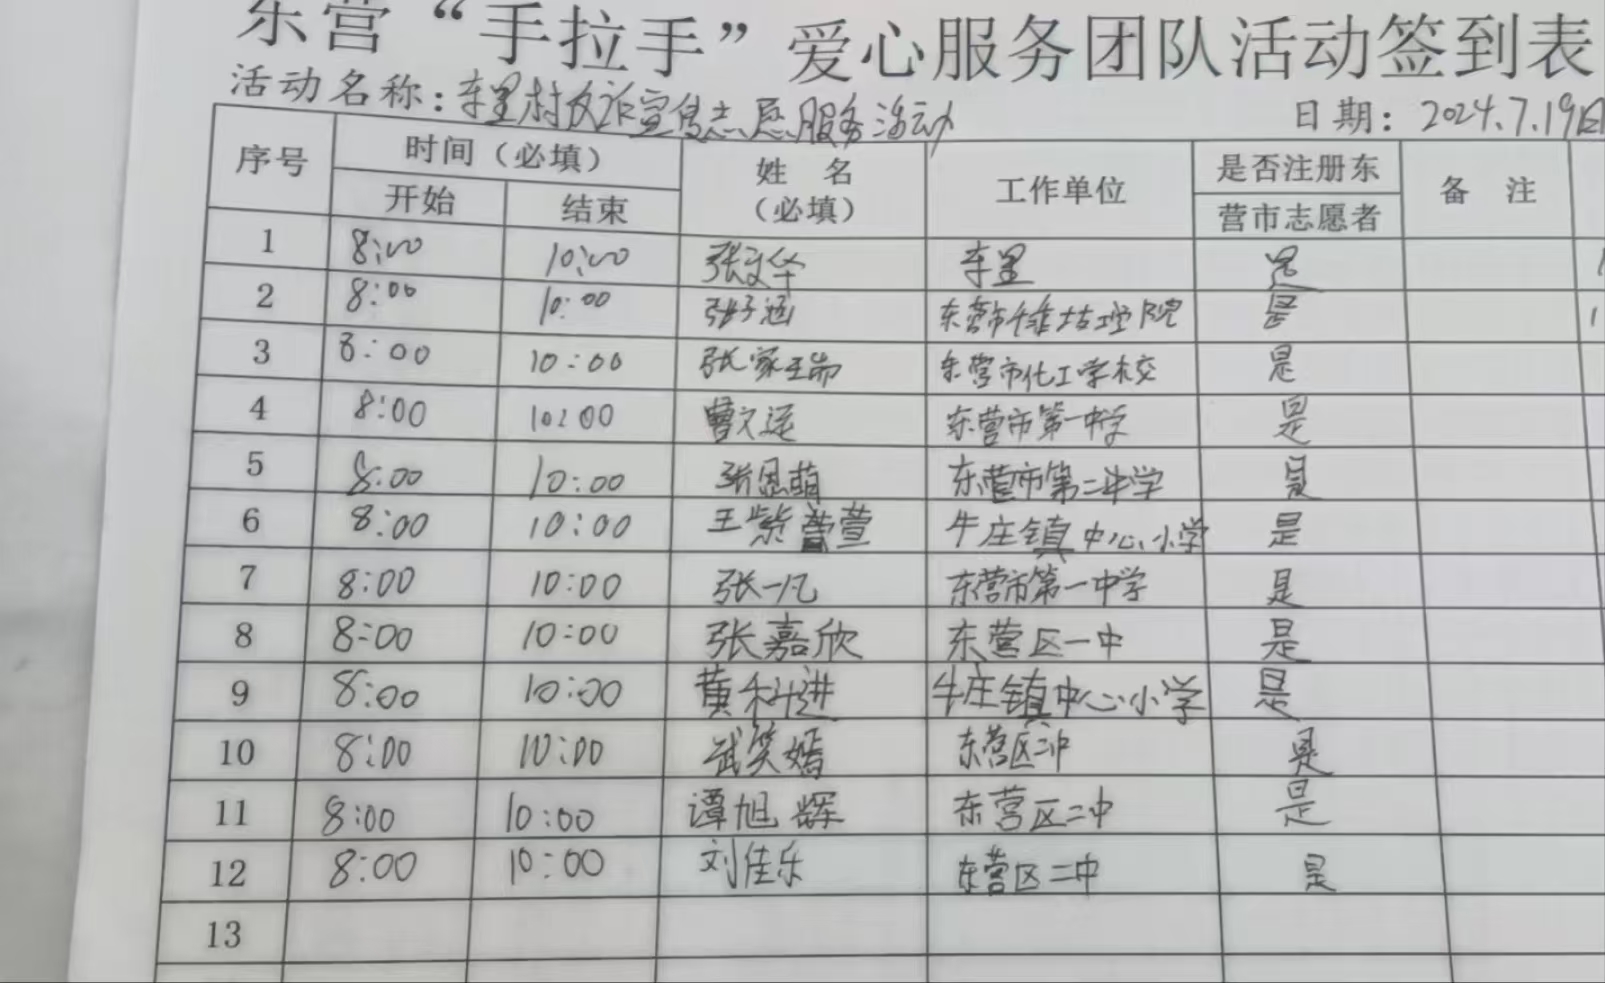 东营“手拉手”爱心服务团队活动签到表
活动名称：车里村反诈宣传志愿服务活动 日期：2024.7.19日
序号 时间（必填） 姓 名（必填） 工作单位 是否注册东营市志愿者 备 注
开始 结束
1 8:00 10:00 张文华 车里 是
2 8:00 10:00 张子涵 东营市 院 是
3 8:00 10:00 张家瑞 东营市化工学校 是
4 8:00 10:00 曹文运 东营市第一中学 是
5 8:00 10:00 张恩萌 东营市第二中学 是
6 8:00 10:00 王紫萱 牛庄镇中心小学 是
7 8:00 10:00 张一凡 东营市第一中学 是
8 8:00 10:00 张嘉欣 东营区一中 是
9 8:00 10:00 黄科进 牛庄镇中心小学 是
10 8:00 10:00 武笑嫣 东营区二中 是
11 8:00 10:00 谭旭辉 东营区二中 是
12 8:00 10:00 刘佳乐 东营区二中 是
13